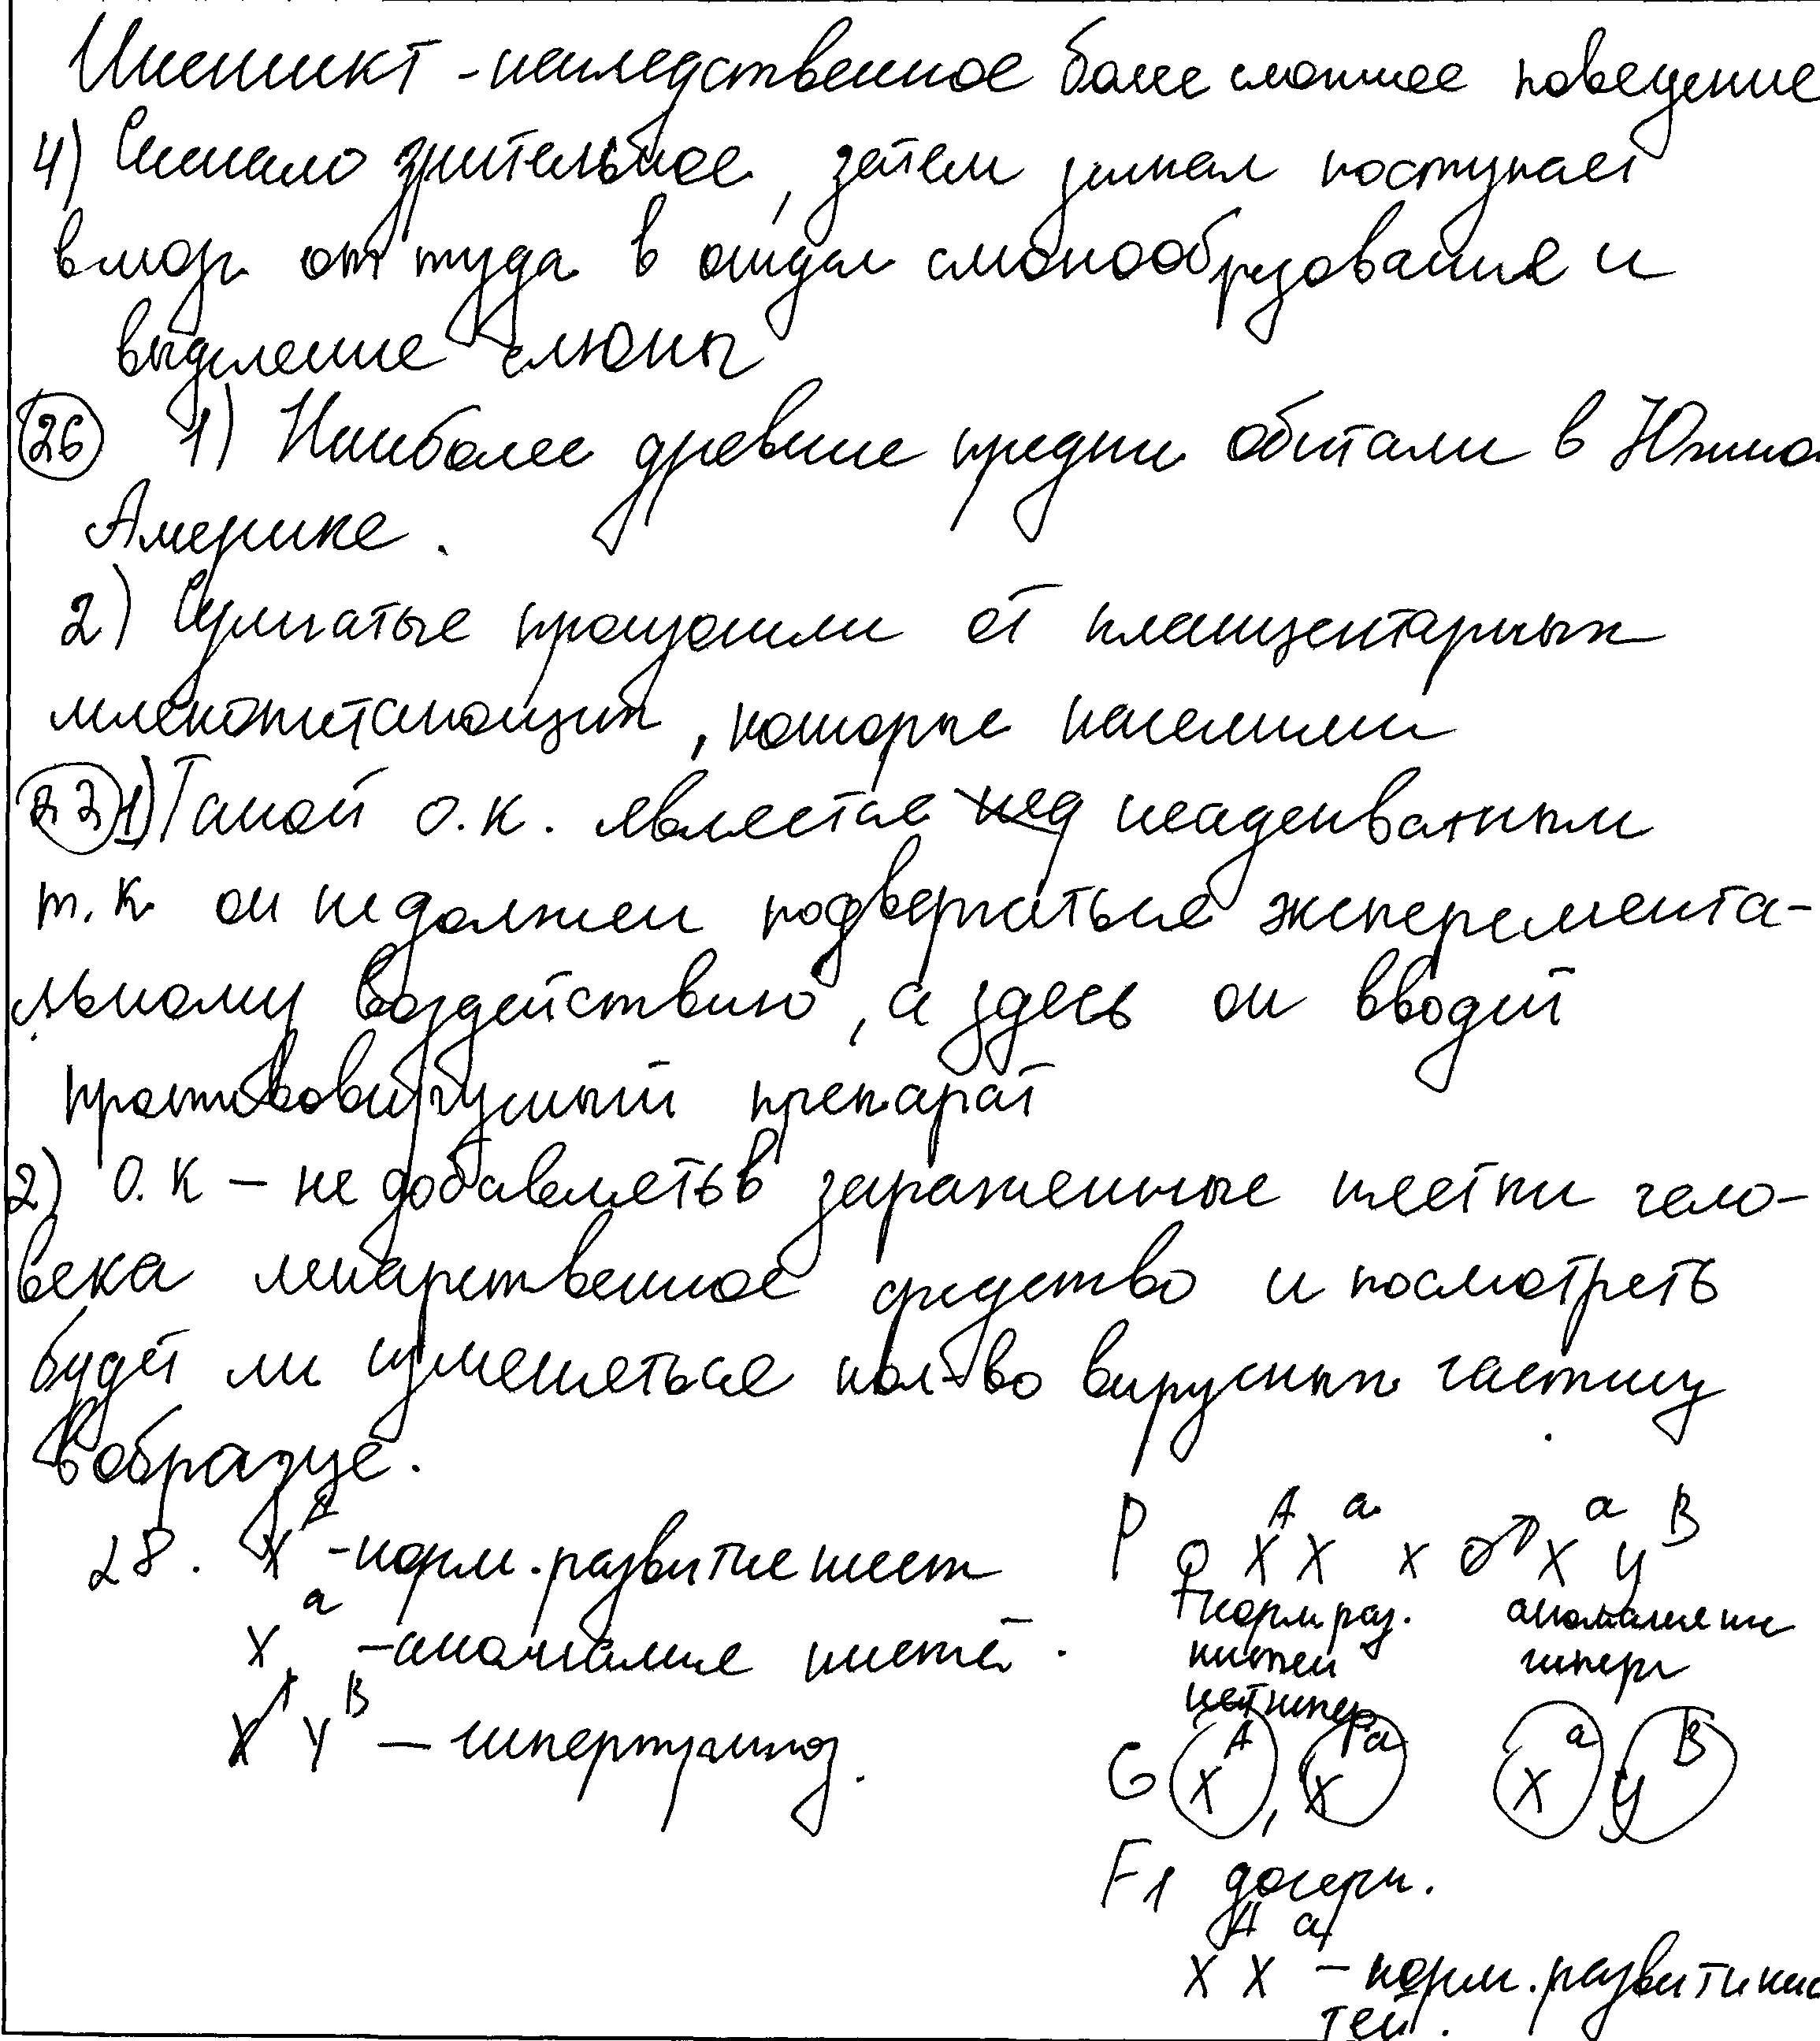 Инстинкт - наследственное более сложное поведение
4) Сначало зрительное, затем сигнал поступает
в мозг оттуда в отдел слюнообразования и
выделение слюны
26 1) Наиболее древние предки обитали в Южной
Америке.
2) Сумчатые произошли от плацентарных
млекопитающих, которые населили
1) Такой о.к. является неадекватным
т.к. он не должен подвергаться эксперемента-
льному воздействию, а здесь он вводит
противовирусный препарат
2) О.К - не добавлять в зараженные клетки чело-
века лекарственное средство и посмотреть
будет ли изменяться кол-во вирусных частиц
в образце.
28. X^A - норм. развитие кист
X^a - аномалия кистей.
X Y^B - гипертрихоз.
P ♀ X^A X^a x ♂ X^a Y^B
норм раз. аномалия ки
кистей гиперт
нет гипер
G X^A, X^a X^a Y^B
F1 дочери.
X^A X^a - норм. развити кис
тей.